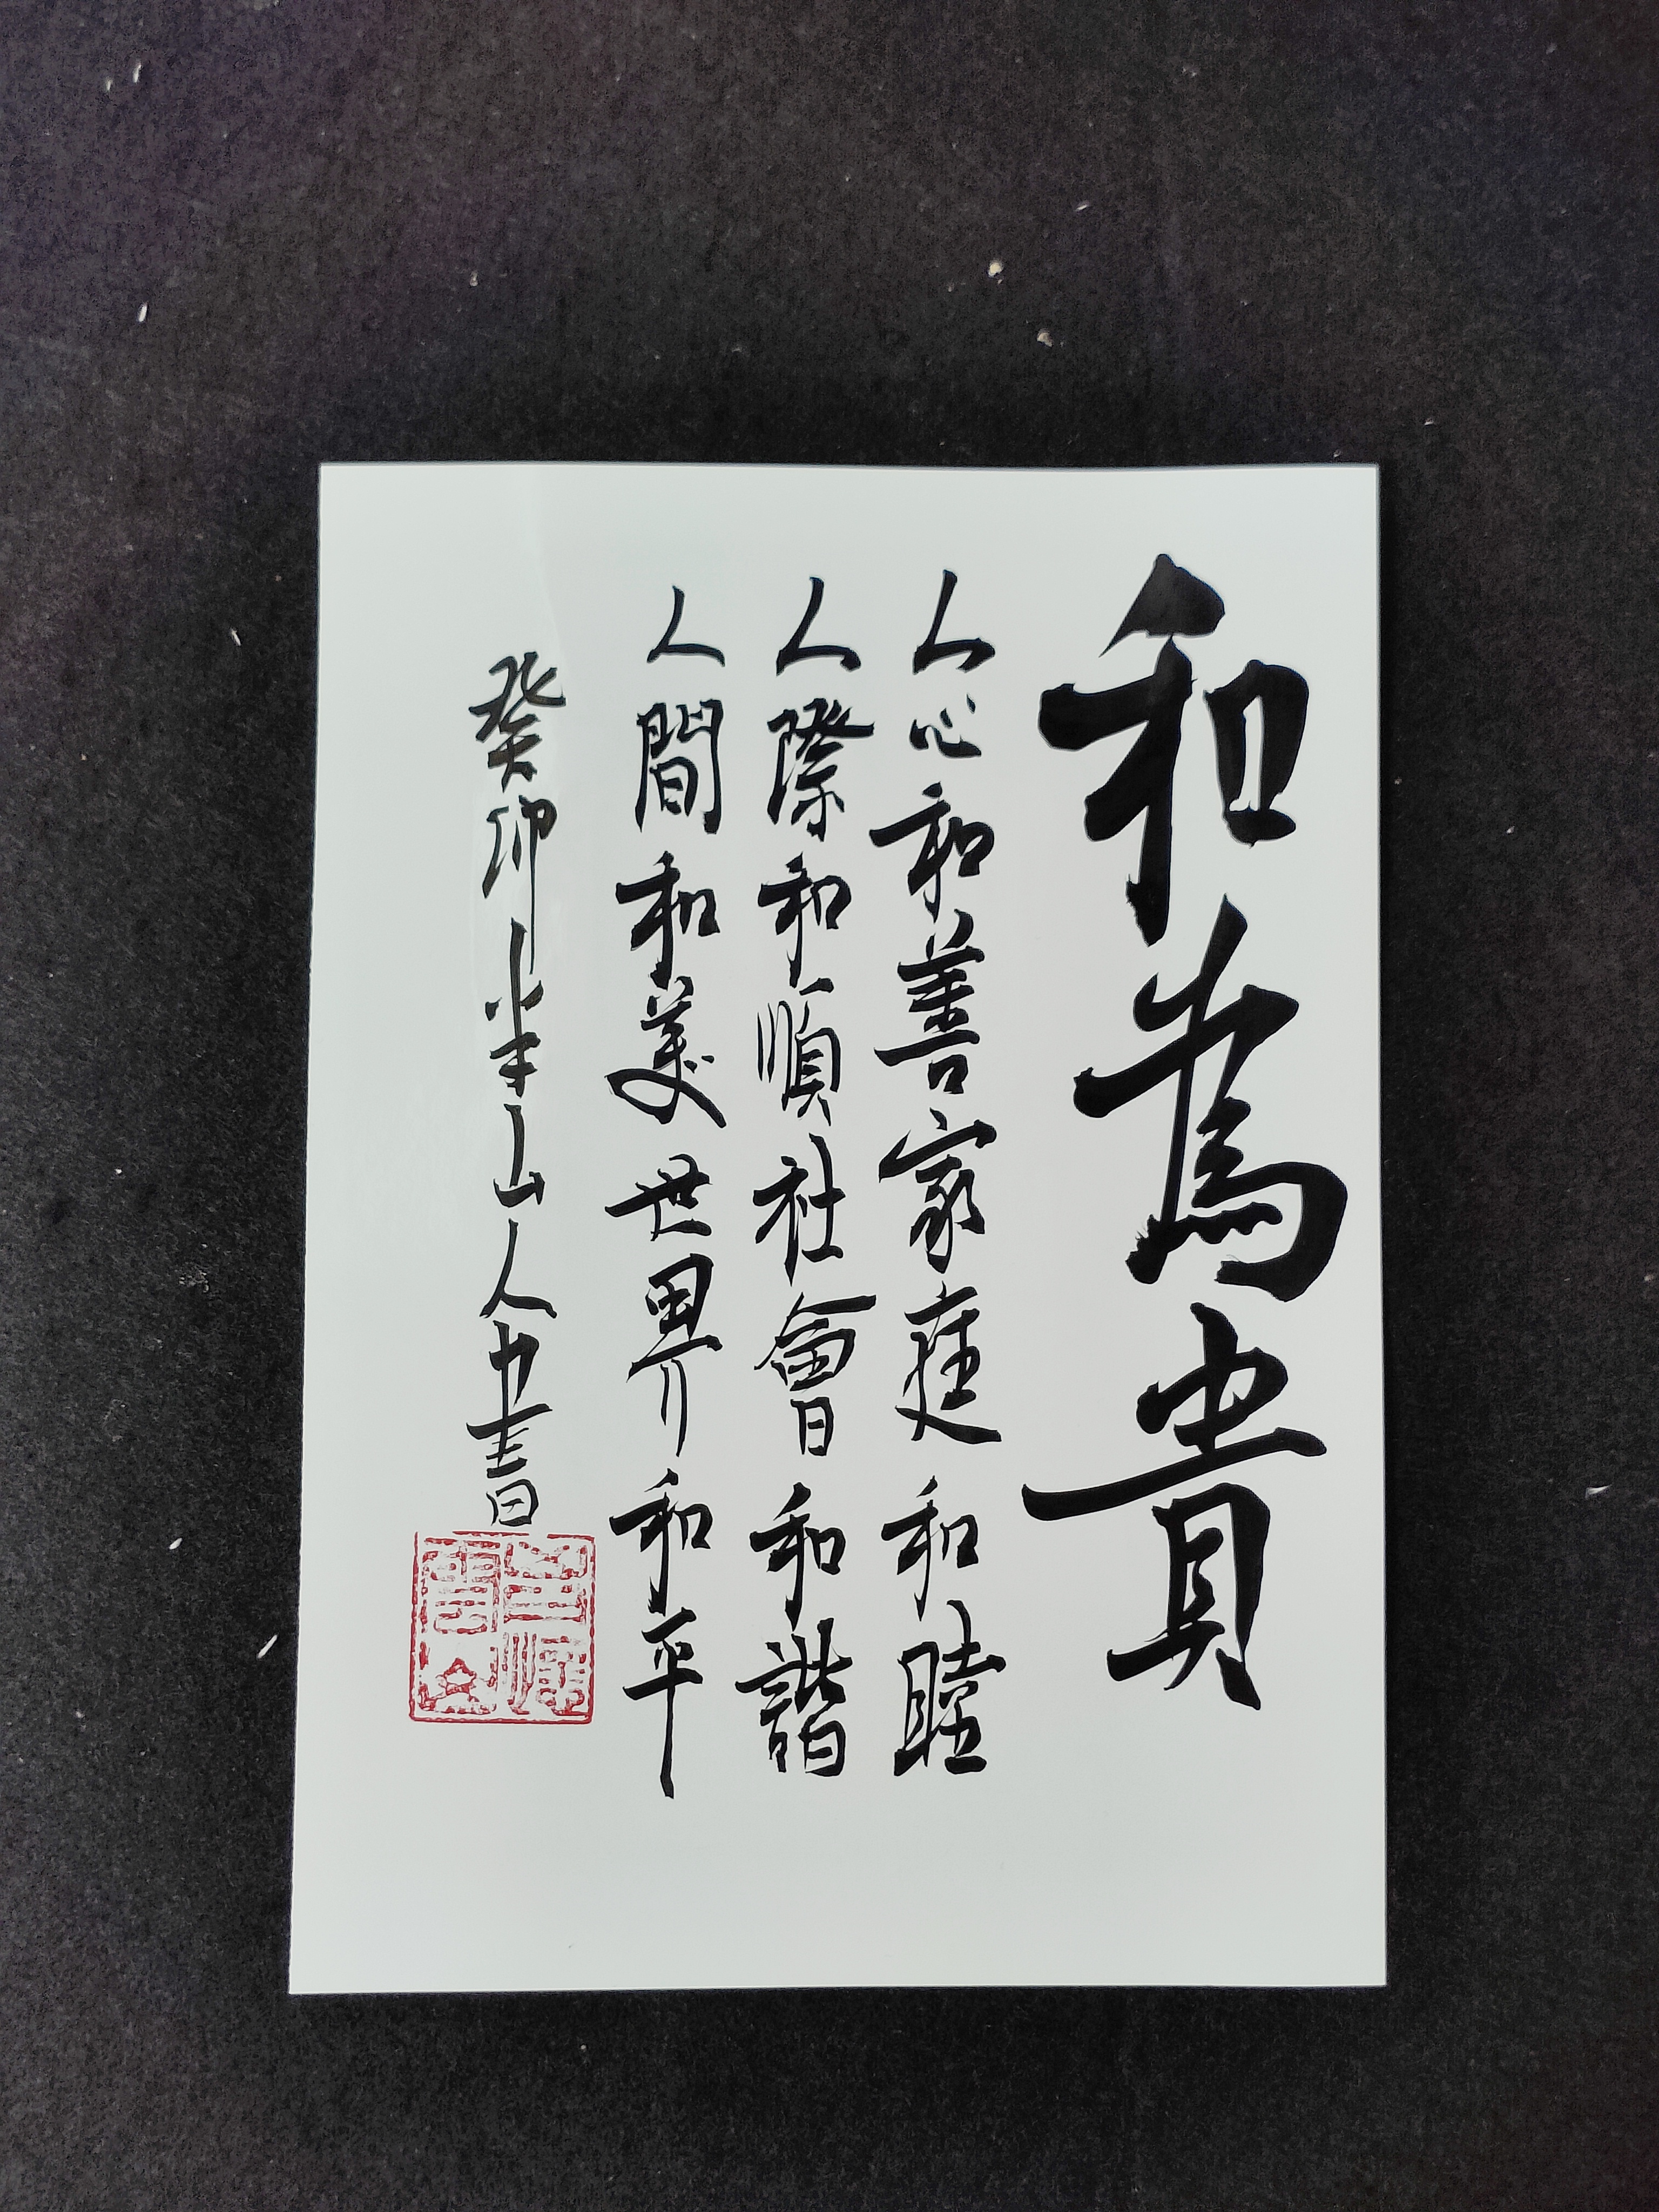 和為貴
人心和善家庭和睦
人際和順社會和諧
人間和美世界和平
癸卯半山人书書